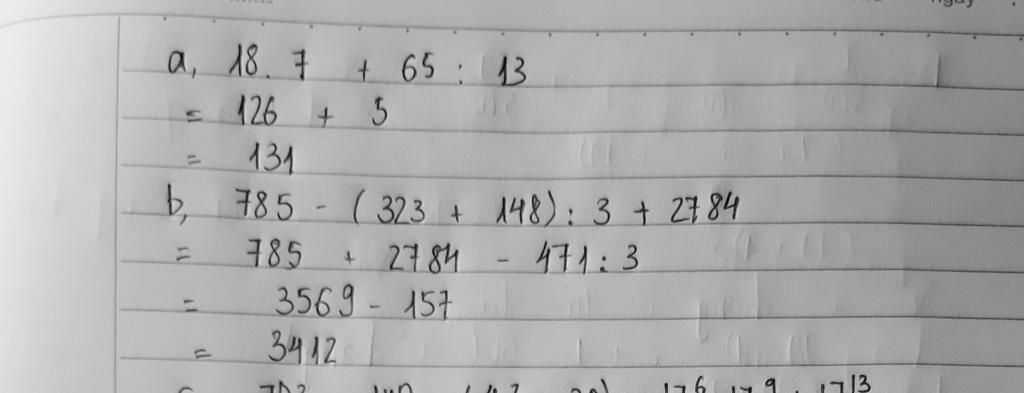 a, 18. 7 + 65 : 13
= 126 + 5
= 131
b, 785 - ( 323 + 148) : 3 + 2784
= 785 + 2784 - 471 : 3
= 3569 - 157
= 3412